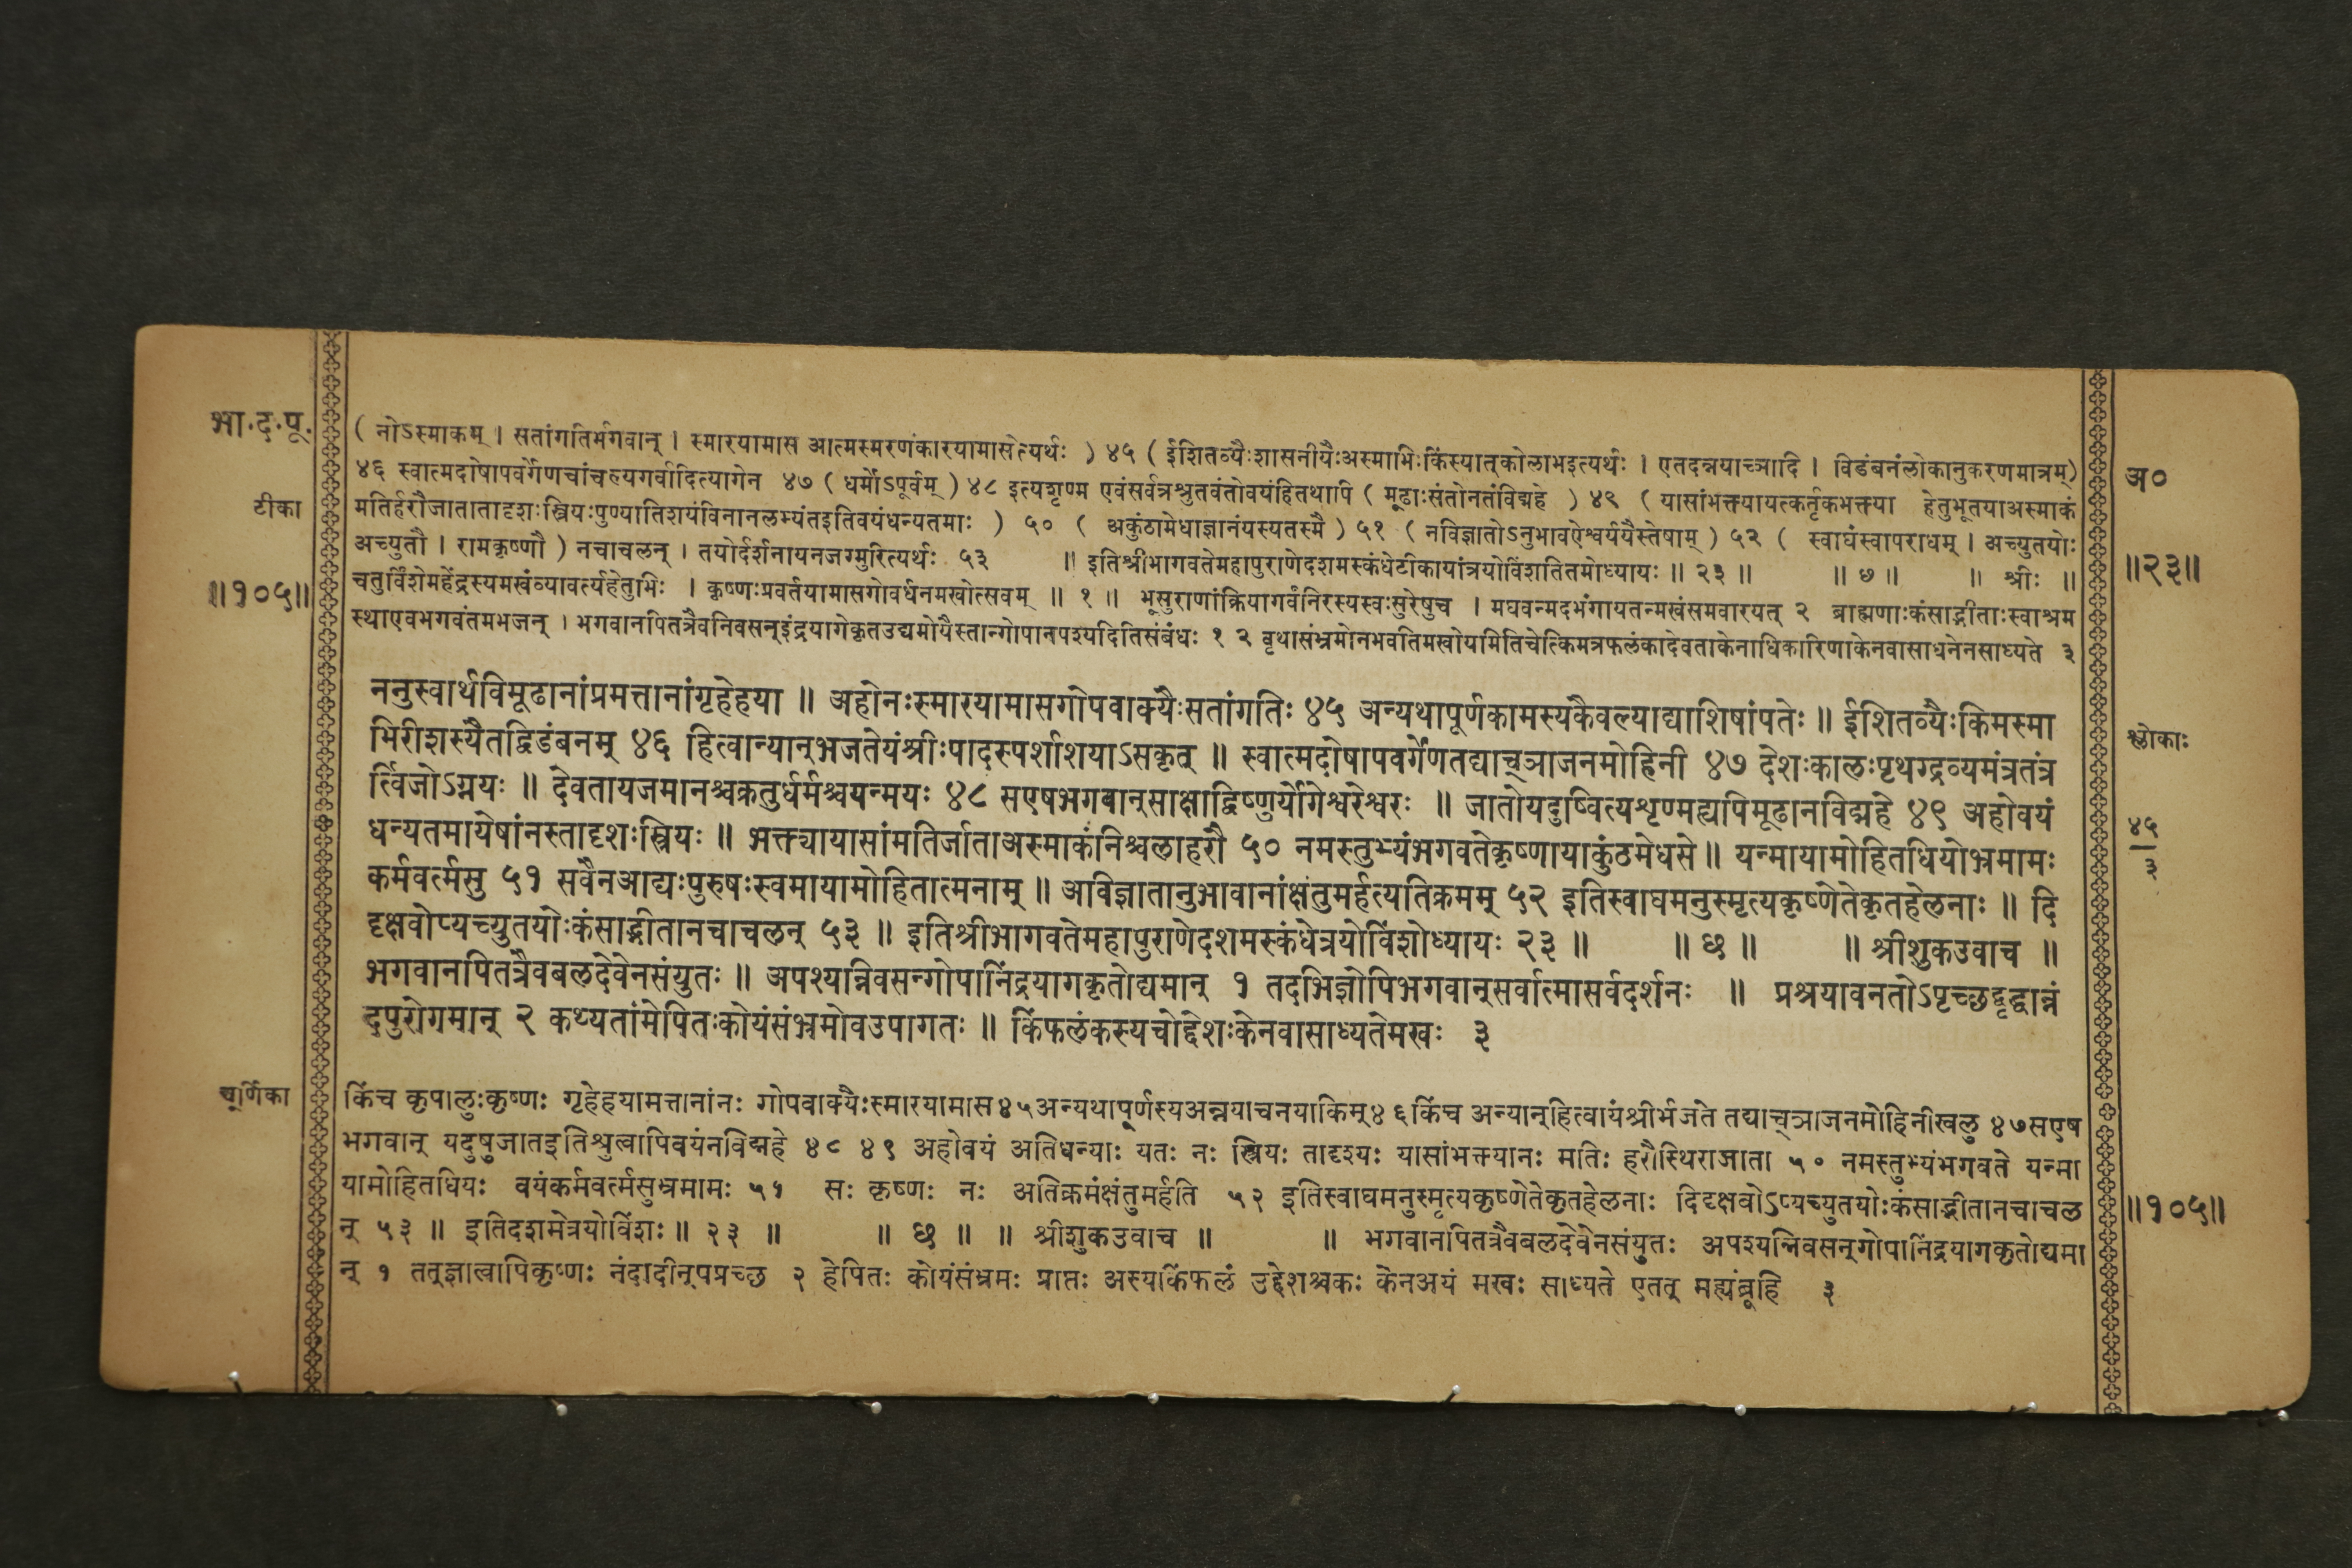 भा.द.पू.
( नोऽस्माकम् । सतांगतिर्भगवान् । स्मारयामास आत्मस्मरणंकारयामासेत्यर्थः ) ४५ ( ईशितव्यैःशासनीयैःअस्माभिःकिंस्यात्कोलाभइत्यर्थः । एतदन्नयाच्ञादि । विडंबनंलोकानुकरणमात्रम्)
४६ स्वात्मदोषापवर्गेणचांचल्यगर्वादित्यागेन ४७ ( धर्मोऽपूर्वम् ) ४८ इत्यशृण्म एवंसर्वत्रश्रुतवंतोवयंहितथापि ( मूढाःसंतोनतंविद्महे ) ४९ ( यासांभक्त्यायत्कर्तृकभक्त्या हेतुभूतयाअस्माकं
अ०
टीका
मतिर्हरौजातातादृशःस्त्रियःपुण्यातिशयंविनानलभ्यंतइतिवयंधन्यतमाः ) ५० ( अकुंठामेधाज्ञानंयस्यतस्मै ) ५१ ( नविज्ञातोऽनुभावऐश्वर्ययैस्तेषाम् ) ५२ ( स्वाघंस्वापराधम् । अच्युतयोः
अच्युतौ । रामकृष्णौ ) नचाचलन् । तयोर्दर्शनायनजग्मुरित्यर्थः ५३ ॥ इतिश्रीभागवतेमहापुराणेदशमस्कंधेटीकायांत्रयोविंशतितमोध्यायः ॥ २३ ॥ ॥ ७ ॥ ॥ श्रीः ॥
॥२३॥
॥१०५॥
चतुर्विंशेमहेंद्रस्यमखंव्यावर्त्यहेतुभिः । कृष्णःप्रवर्तयामासगोवर्धनमखोत्सवम् ॥ १ ॥ भूसुराणांक्रियागर्वंनिरस्यस्वःसुरेषुच । मघवन्मदभंगायतन्मखंसमवारयत् २ ब्राह्मणाःकंसाद्भीताःस्वाश्रम
स्थाएवभगवंतमभजन् । भगवानपितत्रैवनिवसन्इंद्रयागेकृतउद्यमोयैस्तान्गोपानपश्यदितिसंबंधः १ २ वृथासंभ्रमोनभवतिमखोयमितिचेत्किमत्रफलंकादेवताकेनाधिकारिणाकेनवासाधनेनसाध्यते ३
ननुस्वार्थविमूढानांप्रमत्तानांगृहेहया ॥ अहोनःस्मारयामासगोपवाक्यैःसतांगतिः ४५ अन्यथापूर्णकामस्यकैवल्याद्याशिषांपतेः ॥ ईशितव्यैःकिमस्मा
भिरीशस्यैतद्विडंबनम् ४६ हित्वान्यान्भजतेयंश्रीःपादस्पर्शाशयाऽसकृत् ॥ स्वात्मदोषापवर्गेणतद्याच्ञाजनमोहिनी ४७ देशःकालःपृथग्द्रव्यमंत्रतंत्र
श्लोकाः
र्त्विजोऽग्नयः ॥ देवतायजमानश्चक्रतुर्धर्मश्चयन्मयः ४८ सएषभगवान्साक्षाद्विष्णुर्योगेश्वरेश्वरः ॥ जातोयदुष्वित्यशृण्मह्यपिमूढानविद्महे ४९ अहोवयं
धन्यतमायेषांनस्तादृशःस्त्रियः ॥ भक्त्यायासांमतिर्जाताअस्माकंनिश्चलाहरौ ५० नमस्तुभ्यंभगवतेकृष्णायाकुंठमेधसे ॥ यन्मायामोहितधियोभ्रमामः
४५
३
कर्मवर्त्मसु ५१ सवैनआद्यःपुरुषःस्वमायामोहितात्मनाम् ॥ अविज्ञातानुभावानांक्षंतुमर्हत्यतिक्रमम् ५२ इतिस्वाघमनुस्मृत्यकृष्णेतेकृतहेलनाः ॥ दि
दृक्षवोप्यच्युतयोःकंसाद्भीतानचाचलन् ५३ ॥ इतिश्रीभागवतेमहापुराणेदशमस्कंधेत्रयोविंशोध्यायः २३ ॥ ॥ छ ॥ ॥ श्रीशुकउवाच ॥
भगवानपितत्रैवबलदेवेनसंयुतः ॥ अपश्यान्निवसन्गोपानिंद्रयागकृतोद्यमान् १ तदभिज्ञोपिभगवान्सर्वात्मासर्वदर्शनः ॥ प्रश्रयावनतोऽपृच्छद्वृद्धान्नं
दपुरोगमान् २ कथ्यतांमेपितःकोयंसंभ्रमोवउपागतः ॥ किंफलंकस्यचोद्देशःकेनवासाध्यतेमखः ३
चूर्णिका
किंच कृपालुःकृष्णः गृहेहयामत्तानांनः गोपवाक्यैःस्मारयामास४५अन्यथापूर्णस्यअन्नयाचनयाकिम्४६किंच अन्यान्हित्वायंश्रीर्भजते तद्याच्ञाजनमोहिनीखलु ४७सएष
भगवान् यदुषुजातइतिश्रुत्वापिवयंनविद्महे ४८ ४९ अहोवयं अतिधन्याः यतः नः स्त्रियः तादृश्यः यासांभक्त्यानः मतिः हरौस्थिराजाता ५० नमस्तुभ्यंभगवते यन्मा
यामोहितधियः वयंकर्मवर्त्मसुभ्रमामः ५१ सः कृष्णः नः अतिक्रमंक्षंतुमर्हति ५२ इतिस्वाघमनुस्मृत्यकृष्णेतेकृतहेलनाः दिदृक्षवोऽप्यच्युतयोःकंसाद्भीतानचाचल
॥१०५॥
न् ५३ ॥ इतिदशमेत्रयोविंशः ॥ २३ ॥ ॥ छ ॥ ॥ श्रीशुकउवाच ॥ ॥ भगवानपितत्रैवबलदेवेनसंयुतः अपश्यन्निवसन्गोपानिंद्रयागकृतोद्यमा
न् १ तत्ज्ञात्वापिकृष्णः नंदादीन्पप्रच्छ २ हेपितः कोयंसंभ्रमः प्राप्तः अस्यकिंफलं उद्देशश्चकः केनअयं मखः साध्यते एतत् मह्यंब्रूहि ३